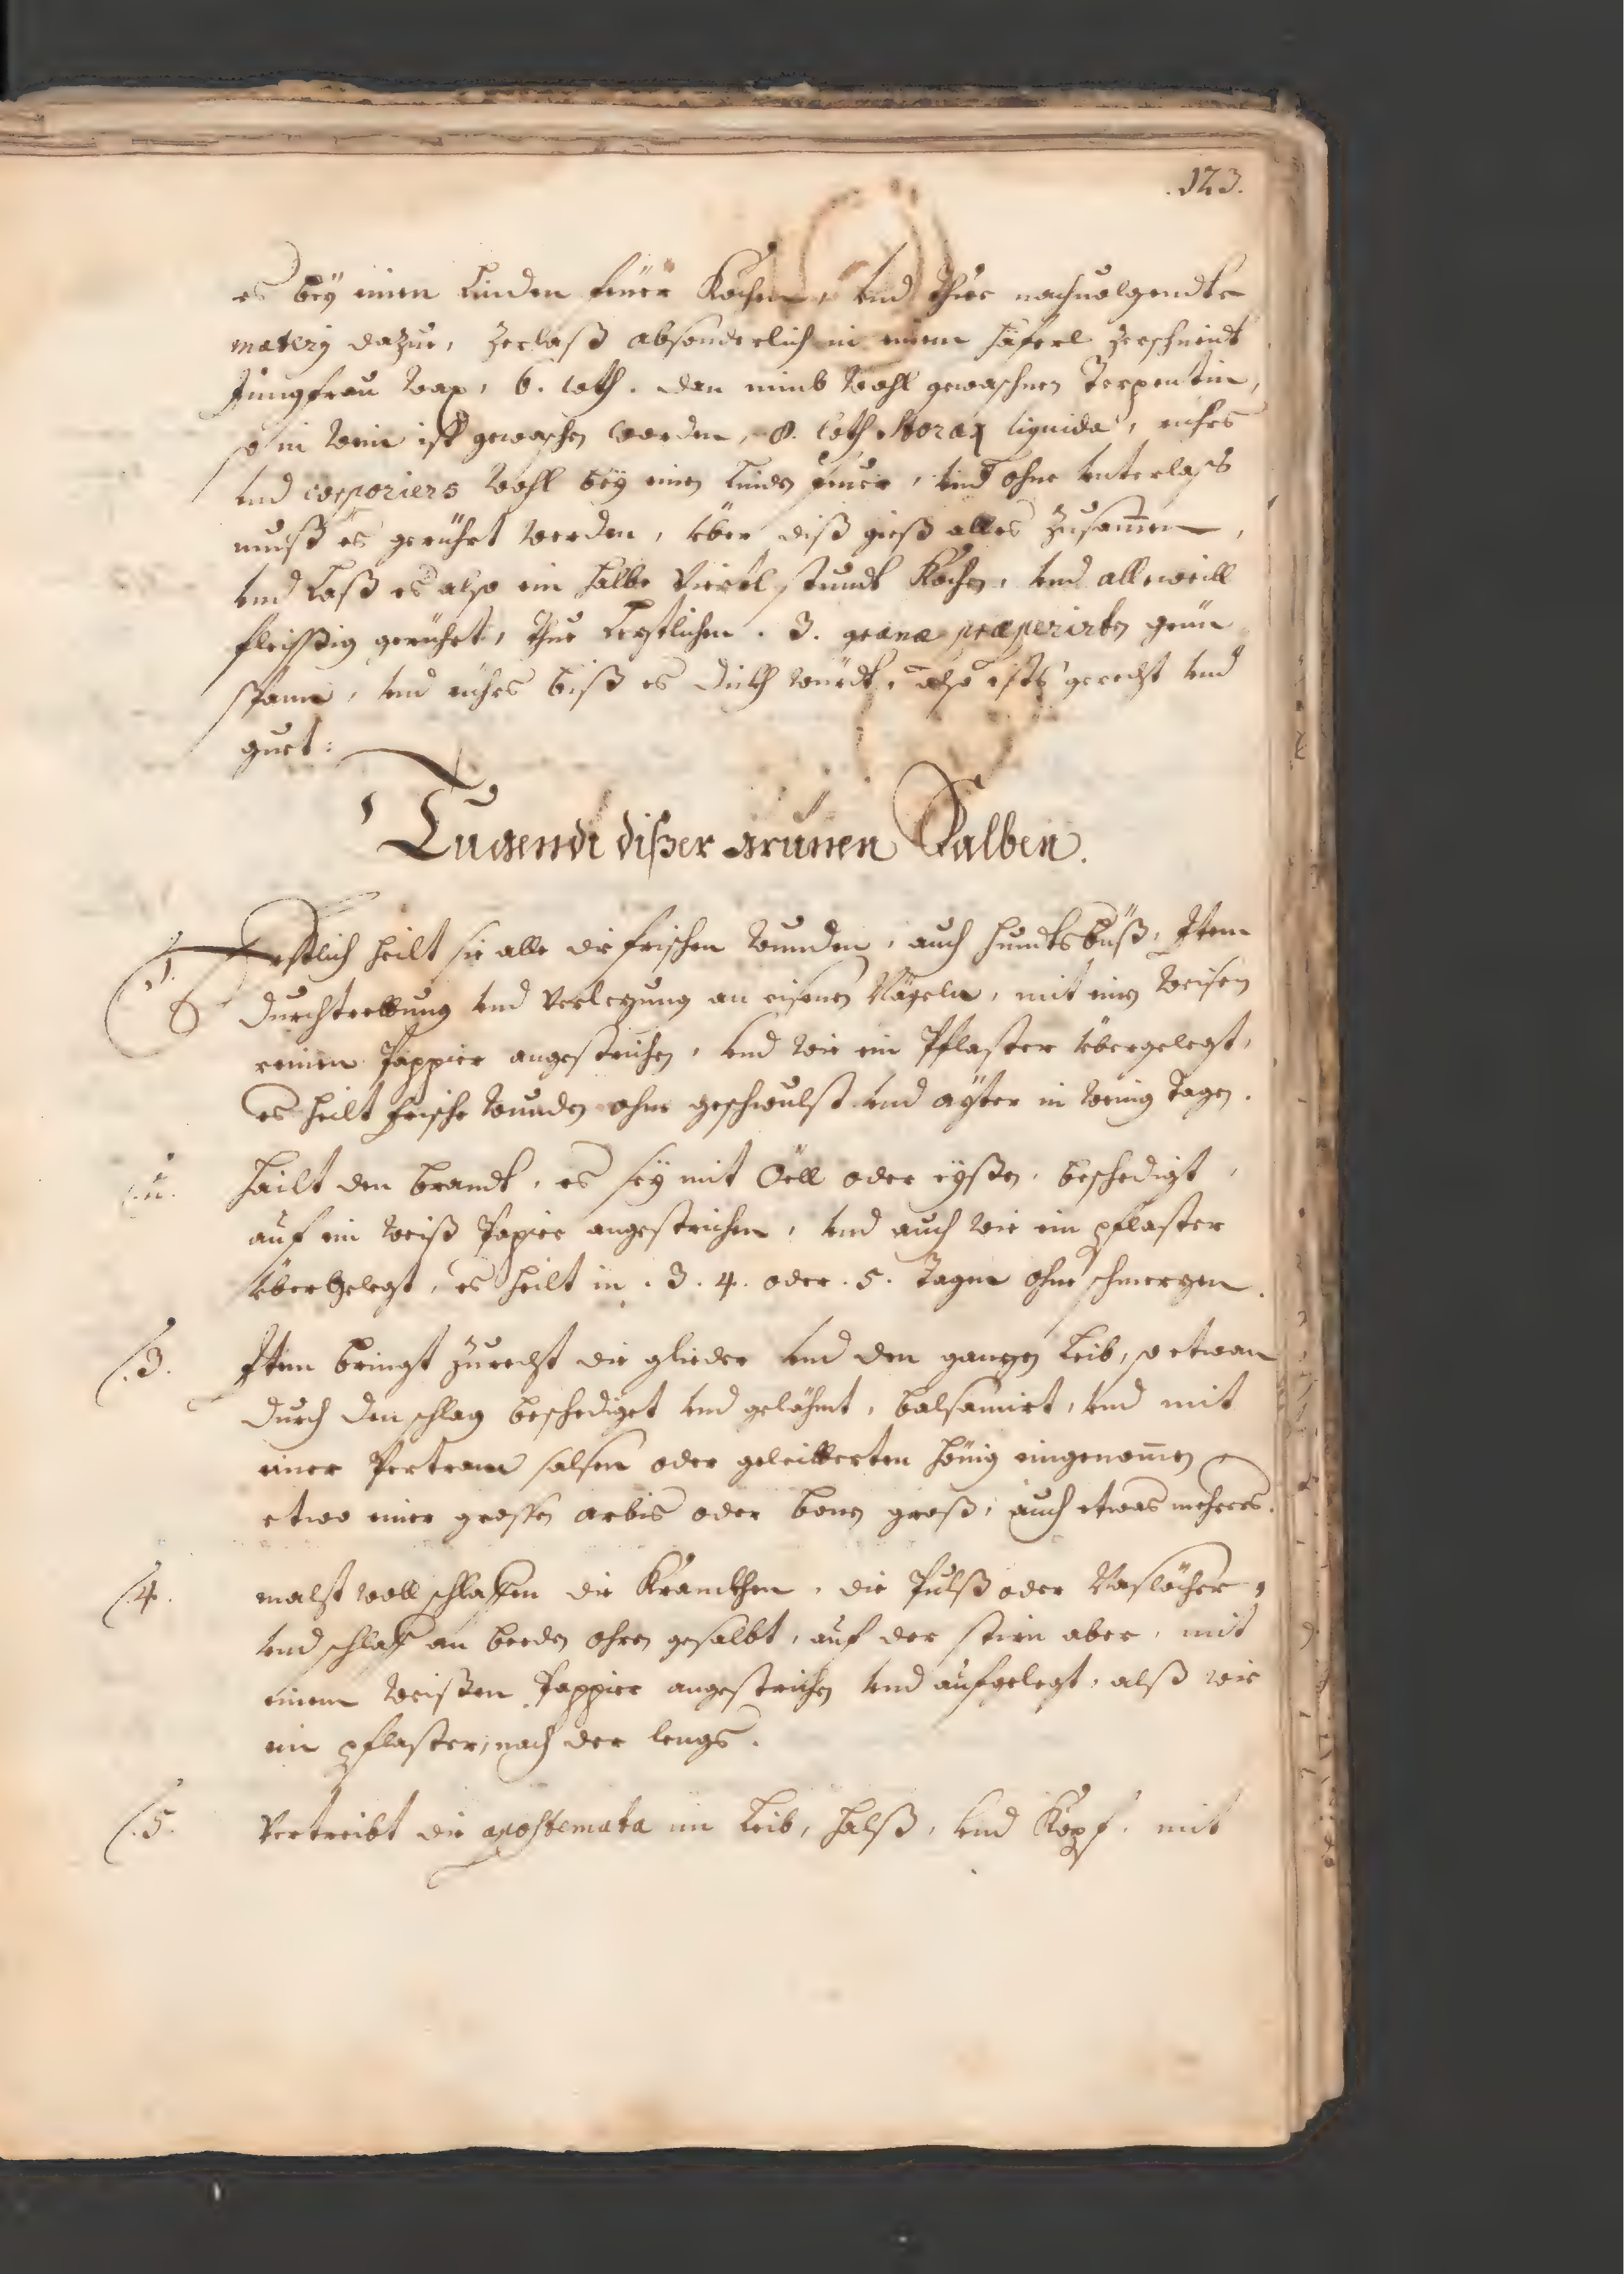 .123.
es beÿ einen Linden feüer Kochen, vnd thue nachuolgendte
matery dazue, zerlaß absonderlich in einem häferl zerschneidt
Jungfrau wax, 6. loth. dan nimb wohl gewaschnen Terpentin,
so in wein ist gewaschen worden, 8. loth Storax liquida, riehrs
vnd corporiers wohl beÿ einen Linden feuer, vnd ohne vnterlaß
muß es gerührt werden, über diß gieß alles zusam̅en,
vnd Laß es also ein halbe viertl stundt Kochen, vnd alleweill
fleissßig gerührt, thue Lezstlichen .3. grana præperirten grien
span, vnd riehrs biß es dickh würdt, also ists gerecht vnd
guet:
Tugendt dißer grünen Salben.
.1. Erstlich heilt sie alle die frischen wunden, auch hundtsbüß, Item
durchtrettung vnd verlezung an eisenen Nägeln, mit einen weisen
reinen Pappier angestrichen, vnd wie ein Pflaster übergelegt,
es heilt frische wunden ohne geschwulst vnd aÿter in wenig tagen.
.ii. Hailt den brandt, es seÿ mit Öell oder eÿßen, beschedigt,
auf ein weiß Papier angestrichen, vnd auch wie ein pflaster
überGelegt, es heilt in .3. 4. oder .5. Tagen ohne schmerzen.
.3. Item bringt zurecht die glieder vnd den ganzen Leib, so etwan
durch den schlag beschediget vnd gelähmt, balsamirt, vnd mit
einer Pertram salsen oder geleitterten hönig eingenom̅en
etwo einer grossen arbis oder bonen groß, auch etwas mehrers.
.4. macht woll schlaffen die Krancken, die Pulß oder Naslöcher,
vnd schlaf an beeden ohren gesalbt, auf der stirn aber, mit
einem weissen Pappier angestrichen vnd aufgelegt, alß wie
ein pflaster, nach der lengs.
.5. Vertreibt die apostemata im Leib, Halß, vnd Kopf, mit